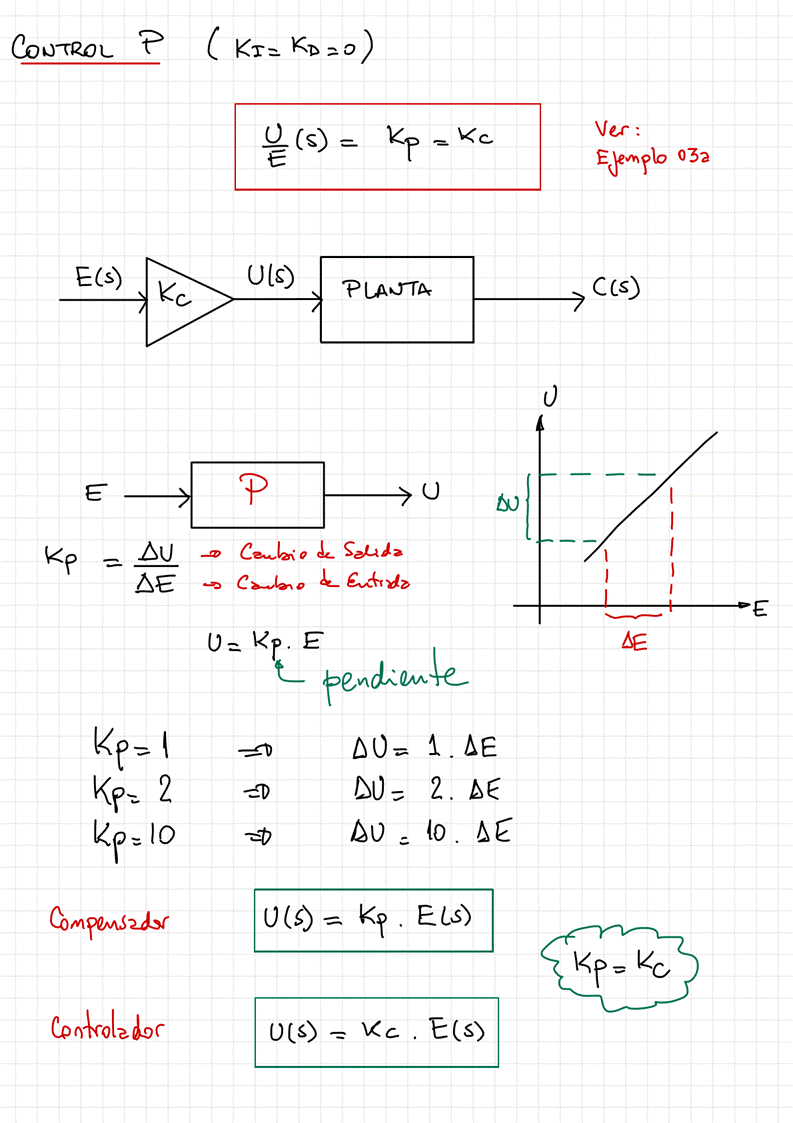 CONTROL P ( KI = KD = 0 )
U/E (s) = Kp = Kc
Ver:
Ejemplo 03a
E(s) Kc U(s) PLANTA C(s)
U
E P U
ΔU
Kp = ΔU/ΔE
→ Cambio de Salida
→ Cambio de Entrada
E
ΔE
U = Kp . E
pendiente
Kp = 1 ⇒ ΔU = 1 . ΔE
Kp = 2 ⇒ ΔU = 2 . ΔE
Kp = 10 ⇒ ΔU = 10 . ΔE
Compensador U(s) = Kp . E(s)
Kp = Kc
Controlador U(s) = Kc . E(s)